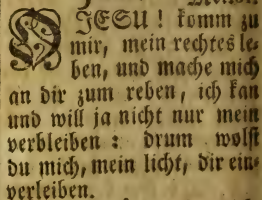 O JESU! komm zu
mir, mein rechtes le-
ben, und mache mich
an dir zum reben, ich kan
und will ja nicht nur mein
verbleiben: drum wolst
du mich, mein licht, dir ein-
verleiben.